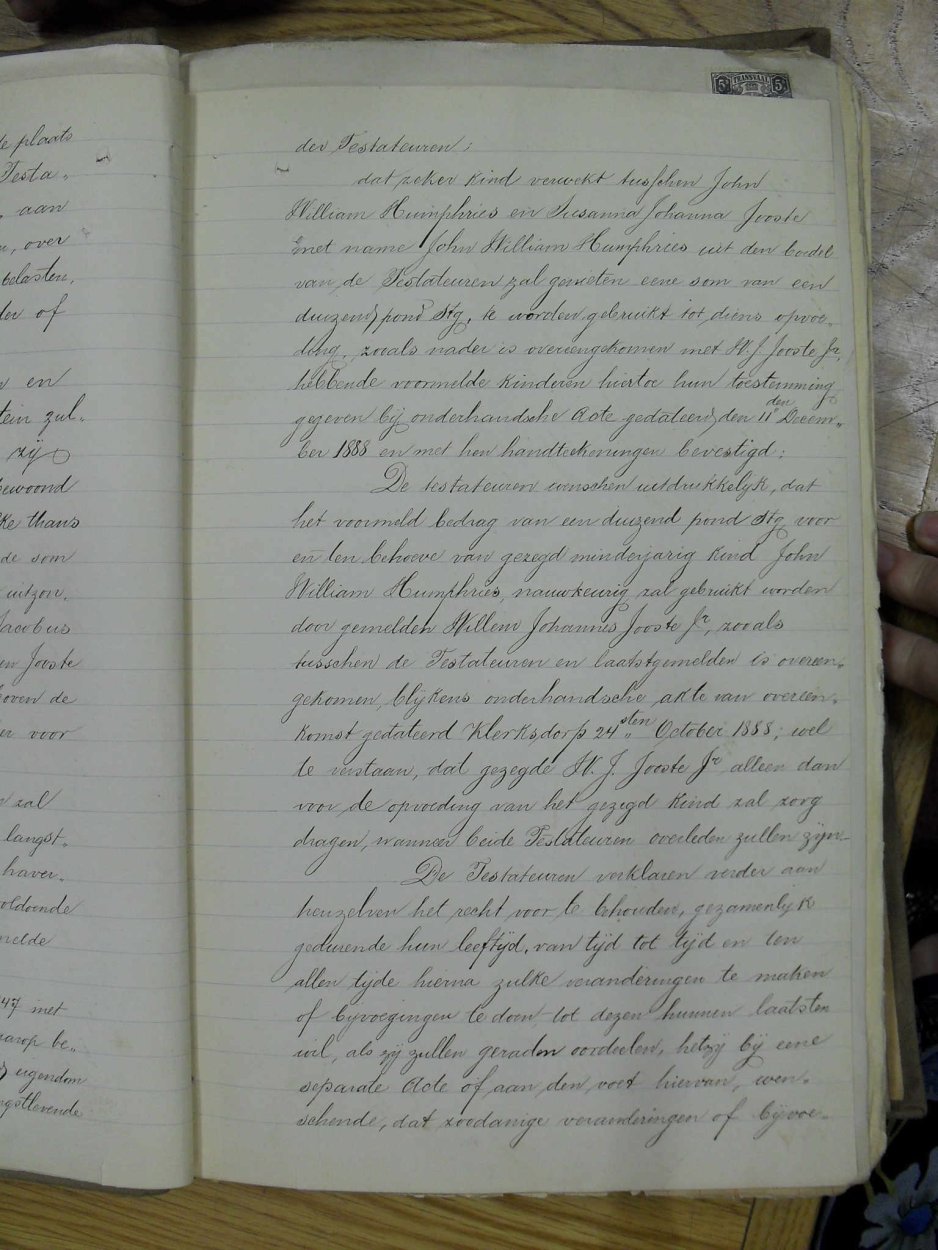 5 TRANSVAAL 5
te plaats
Testa„
, aan
, over
belasten,
der of
en
tein zul„
zij
bewoond
ke thans
de som
uitzon„
Jacobus
en Jooste
boven de
er voor
zal
langst„
haver„
voldoende
melde
47 met
waarop be„
eigendom
ngstlevende
der Testateuren;
dat zeker kind verwekt tusschen John
William Humphries en Susanna Johanna Jooste
met name John William Humphries uit den boedel
van de Testateuren zal genieten eene som van een
duizend pond Stg, te worden gebruikt tot diens opvoe„
ding, zooals nader is overeengekomen met W. J. Jooste Jr,
hebbende voormelde kinderen hiertoe hun toestemming
gegeven bij onderhandsche Acte gedateerd den 11den Decem„
ber 1888 en met hen handteekeningen bevestigd;
De testateuren wenschen uitdrukkelyk, dat
het voormeld bedrag van een duizend pond Stg voor
en ten behoeve van gezegd minderjarig kind John
William Humphries, nauwkeurig zal gebruikt worden
door gemelden Willem Johannes Jooste Jr, zooals
tusschen de Testateuren en laatstgemelden is overeen„
gekomen blykens onderhandsche akte van overeen„
komst gedateerd Klerksdorp 24sten October 1888; wel
te verstaan, dat gezegde W. J. Jooste Jr alleen dan
voor de opvoeding van het gezegd kind zal zorg
dragen, wanneer beide Testateuren overleden zullen zijn
De Testateuren verklaren verder aan
henzelven het recht voor te behouden, gezamenlijk
gedurende hun leeftijd, van tijd tot tijd en ten
allen tijde hierna zulke veranderingen te maken
of bijvoegingen te doen tot dezen hunnen laatsten
wil, als zij zullen geraden oordeelen, hetzij bij eene
separate Acte of aan den voet hiervan, wen„
schende, dat zoodanige veranderingen of bijvoe„